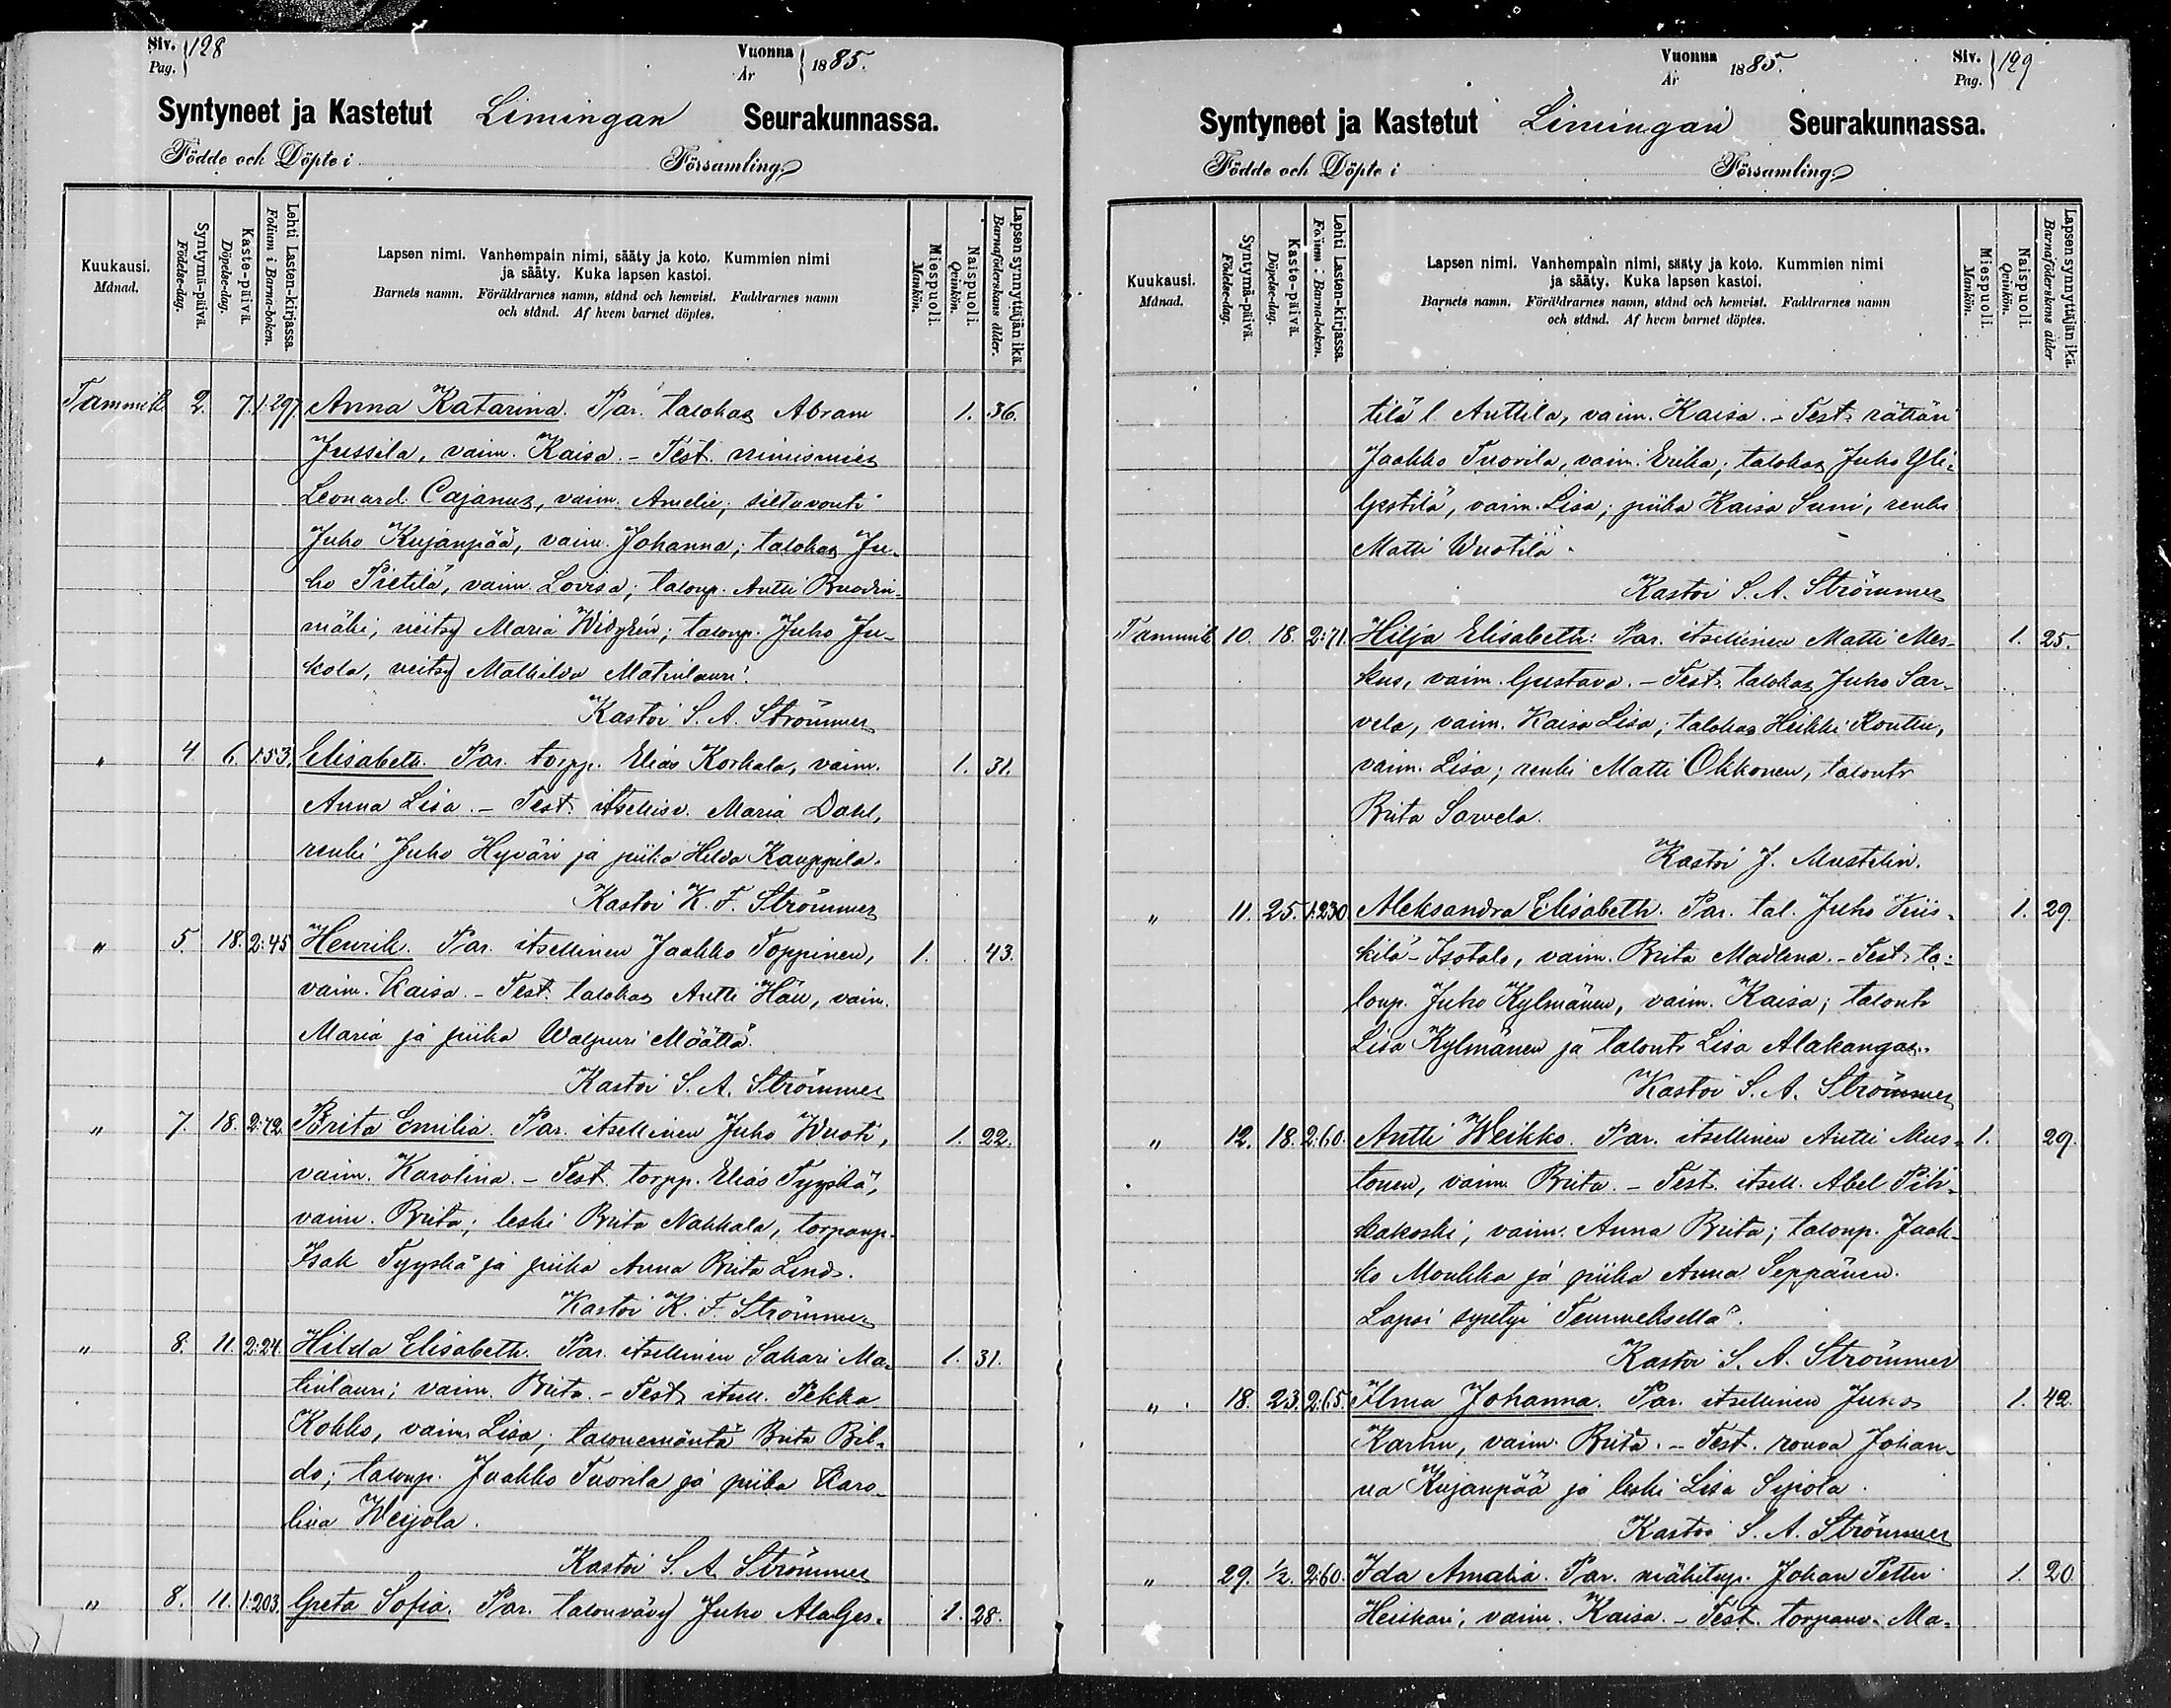 Siv. Pag. 128
Vuonna År 1885.
Syntyneet ja Kastetut Limingan Seurakunnassa.
Födde och Döpte i Församling
Kuukausi. Månad.
Syntymä-päivä. Födelse-dag.
Kaste-päivä. Döpelse-dag.
Lehti Lasten-kirjassa. Folium i Barna-boken.
Lapsen nimi. Vanhempain nimi, sääty ja koto. Kummien nimi
ja sääty. Kuka lapsen kastoi.
Barnets namn. Föräldrarnes namn, stånd och hemvist. Faddrarnes namn
och stånd. Af hvem barnet döptes.
Miespuoli. Mankön.
Naispuoli. Qvinkön.
Lapsen synnyttäjän ikä. Barnaföderskans ålder.
Tammik 2. 7. 1:297 Anna Katarina. Par. talokas Abram 1. 36.
Jussila, vaim. Kaisa. - Test. nimismies
Leonard Cajanus, vaim. Amelie; siltavouti
Juho Kujanpää, vaim. Johanna; talokas Ju-
ho Pietilä, vaim. Lovisa; taloup. Antti Ruodin-
mäki, neitsy Maria Widgrén; taloup. Juho Ju-
kola, neitsy Mathilda Matinlauri.
Kastoi S. A. Strömmer
" 4 6. 1:53. Elisabeth. Par. torpp. Elias Korkala, vaim. 1. 31.
Anna Lisa. - Test. itsellisv. Maria Dahl,
renki Juho Hyväri ja piika Hilda Kauppila.
Kastoi K. F. Strömmer
" 5. 18. 2:45 Henrik. Par. itsellinen Jaakko Toppinen, 1. 43.
vaim. Kaisa. - Test. talokas Antti Hän, vaim.
Maria ja piika Walpuri Määttä.
Kastoi S. A. Strömmer
" 7. 18. 2:72. Brita Emilia. Par. itsellinen Juho Wuoti, 1. 22.
vaim. Karolina. - Test. torpp. Elias Tyyskä,
vaim. Brita; leski Brita Nahkala, torpanp.
Isak Tyyskä ja piika Anna Brita Lind.
Kastoi K. F. Strömmer
" 8. 11. 2:24. Hilda Elisabeth. Par. itsellinen Sakari Ma- 1. 31.
tinlauri; vaim. Brita. - Test. itsell. Pekka
Kokko, vaim. Lisa; talonemäntä Brita Bil-
do; taloup. Jaakko Tuorila ja piika Karo-
lina Weijola.
Kastoi S. A. Strömmer
" 8. 11. 1:203. Greta Sofia. Par. talonvävy Juho AlaGes- 1. 28.
Vuonna År 1885.
Siv. Pag. 129
Syntyneet ja Kastetut Limingan Seurakunnassa.
Födde och Döpte i Församling
Kuukausi. Månad.
Syntymä-päivä. Födelse-dag.
Kaste-päivä. Döpelse-dag.
Lehti Lasten-kirjassa. Folium i Barna-boken.
Lapsen nimi. Vanhempain nimi, sääty ja koto. Kummien nimi
ja sääty. Kuka lapsen kastoi.
Barnets namn. Föräldrarnes namn, stånd och hemvist. Faddrarnes namn
och stånd. Af hvem barnet döptes.
Miespuoli. Mankön.
Naispuoli. Qvinkön.
Lapsen synnyttäjän ikä. Barnaföderskans ålder
tilä l. Anttila, vaim. Kaisa. - Test. rättäri
Jaakko Tuorila, vaim. Erika; talokas Juho Yli-
Gestilä, vaim. Lisa; piika Kaisa Suni, renki
Matti Wuotila.
Kastoi S. A. Strömmer
Tammik 10. 18. 2:71. Hilja Elisabeth. Par. itsellinen Matti Mes- 1. 25.
kus, vaim. Gustava. - Test. talokas Juho Sar-
vela, vaim. Kaisa Lisa; talokas Heikki Routtu,
vaim. Lisa; renki Matti Okkonen, talontr
Brita Sarvela.
Kastoi J. Mustelin.
" 11. 25. 1:230. Aleksandra Elisabeth. Par. tal. Juho Kiis- 1. 29.
kilä-Isotalo, vaim. Brita Madlena. - Test. ta-
loup. Juho Kylmänen, vaim. Kaisa; talontr
Lisa Kylmänen ja talontr Lisa Alakangas.
Kastoi S. A. Strömmer
" 12. 18. 2:60. Antti Weikko. Par. itsellinen Antti Mus- 1. 29.
tonen, vaim. Brita. - Test. itsell. Abel Pih-
lakoski, vaim. Anna Brita; taloup. Jaak-
ko Moukka ja piika Anna Seppänen.
Lapsi syntyi Temmeksellä.
Kastoi S. A. Strömmer
" 18. 23. 2:65. Ilma Johanna. Par. itsellinen Juho 1. 42.
Karhu, vaim. Brita. - Test. rouva Johan-
na Kujanpää ja leski Lisa Sipola.
Kastoi S. A. Strömmer
" 29. 1/2. 2:60. Ida Amalia. Par. mäkitup. Johan Petter 1. 20
Heiskari, vaim. Kaisa. - Test. torpanv. Ma-